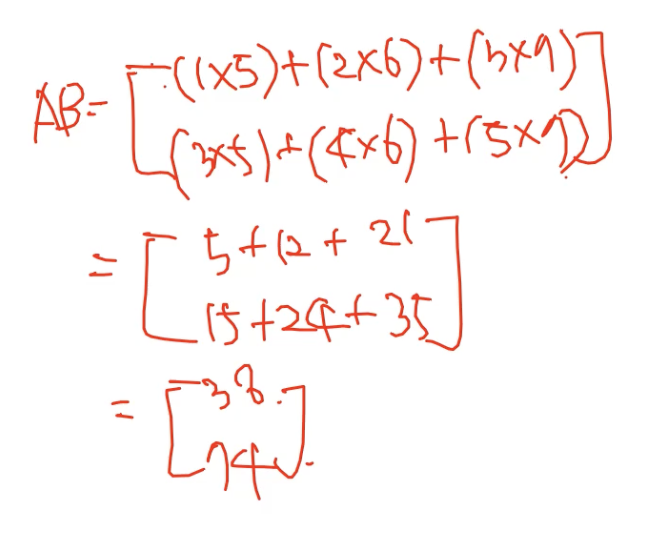 AB = [ (1×5)+(2×6)+(3×7) ]
[ (3×5)+(4×6)+(5×7) ]
= [ 5+12+21 ]
[ 15+24+35 ]
= [ 38 ]
[ 74 ].